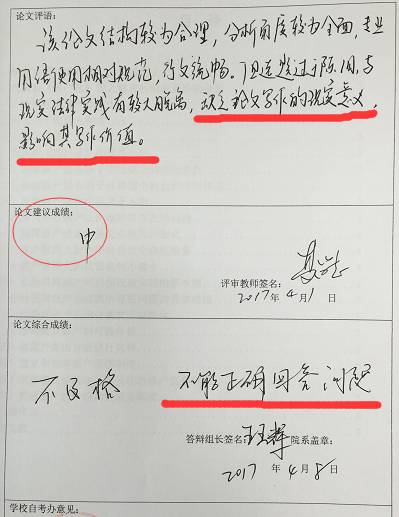 论文评语：
该论文结构较为合理，分析角度较为全面，专业
用语使用相对规范，行文流畅。但选题过于陈旧，与
现实法律实践有较大脱离，缺乏论文写作的现实意义，
影响其写作价值。
论文建议成绩：
中
评审教师签名：
2017 年 4 月 1 日
论文综合成绩：
不及格 不能正确回答问题
答辩组长签名 院系盖章：
2017 年 4 月 8 日
学校自考办意见：